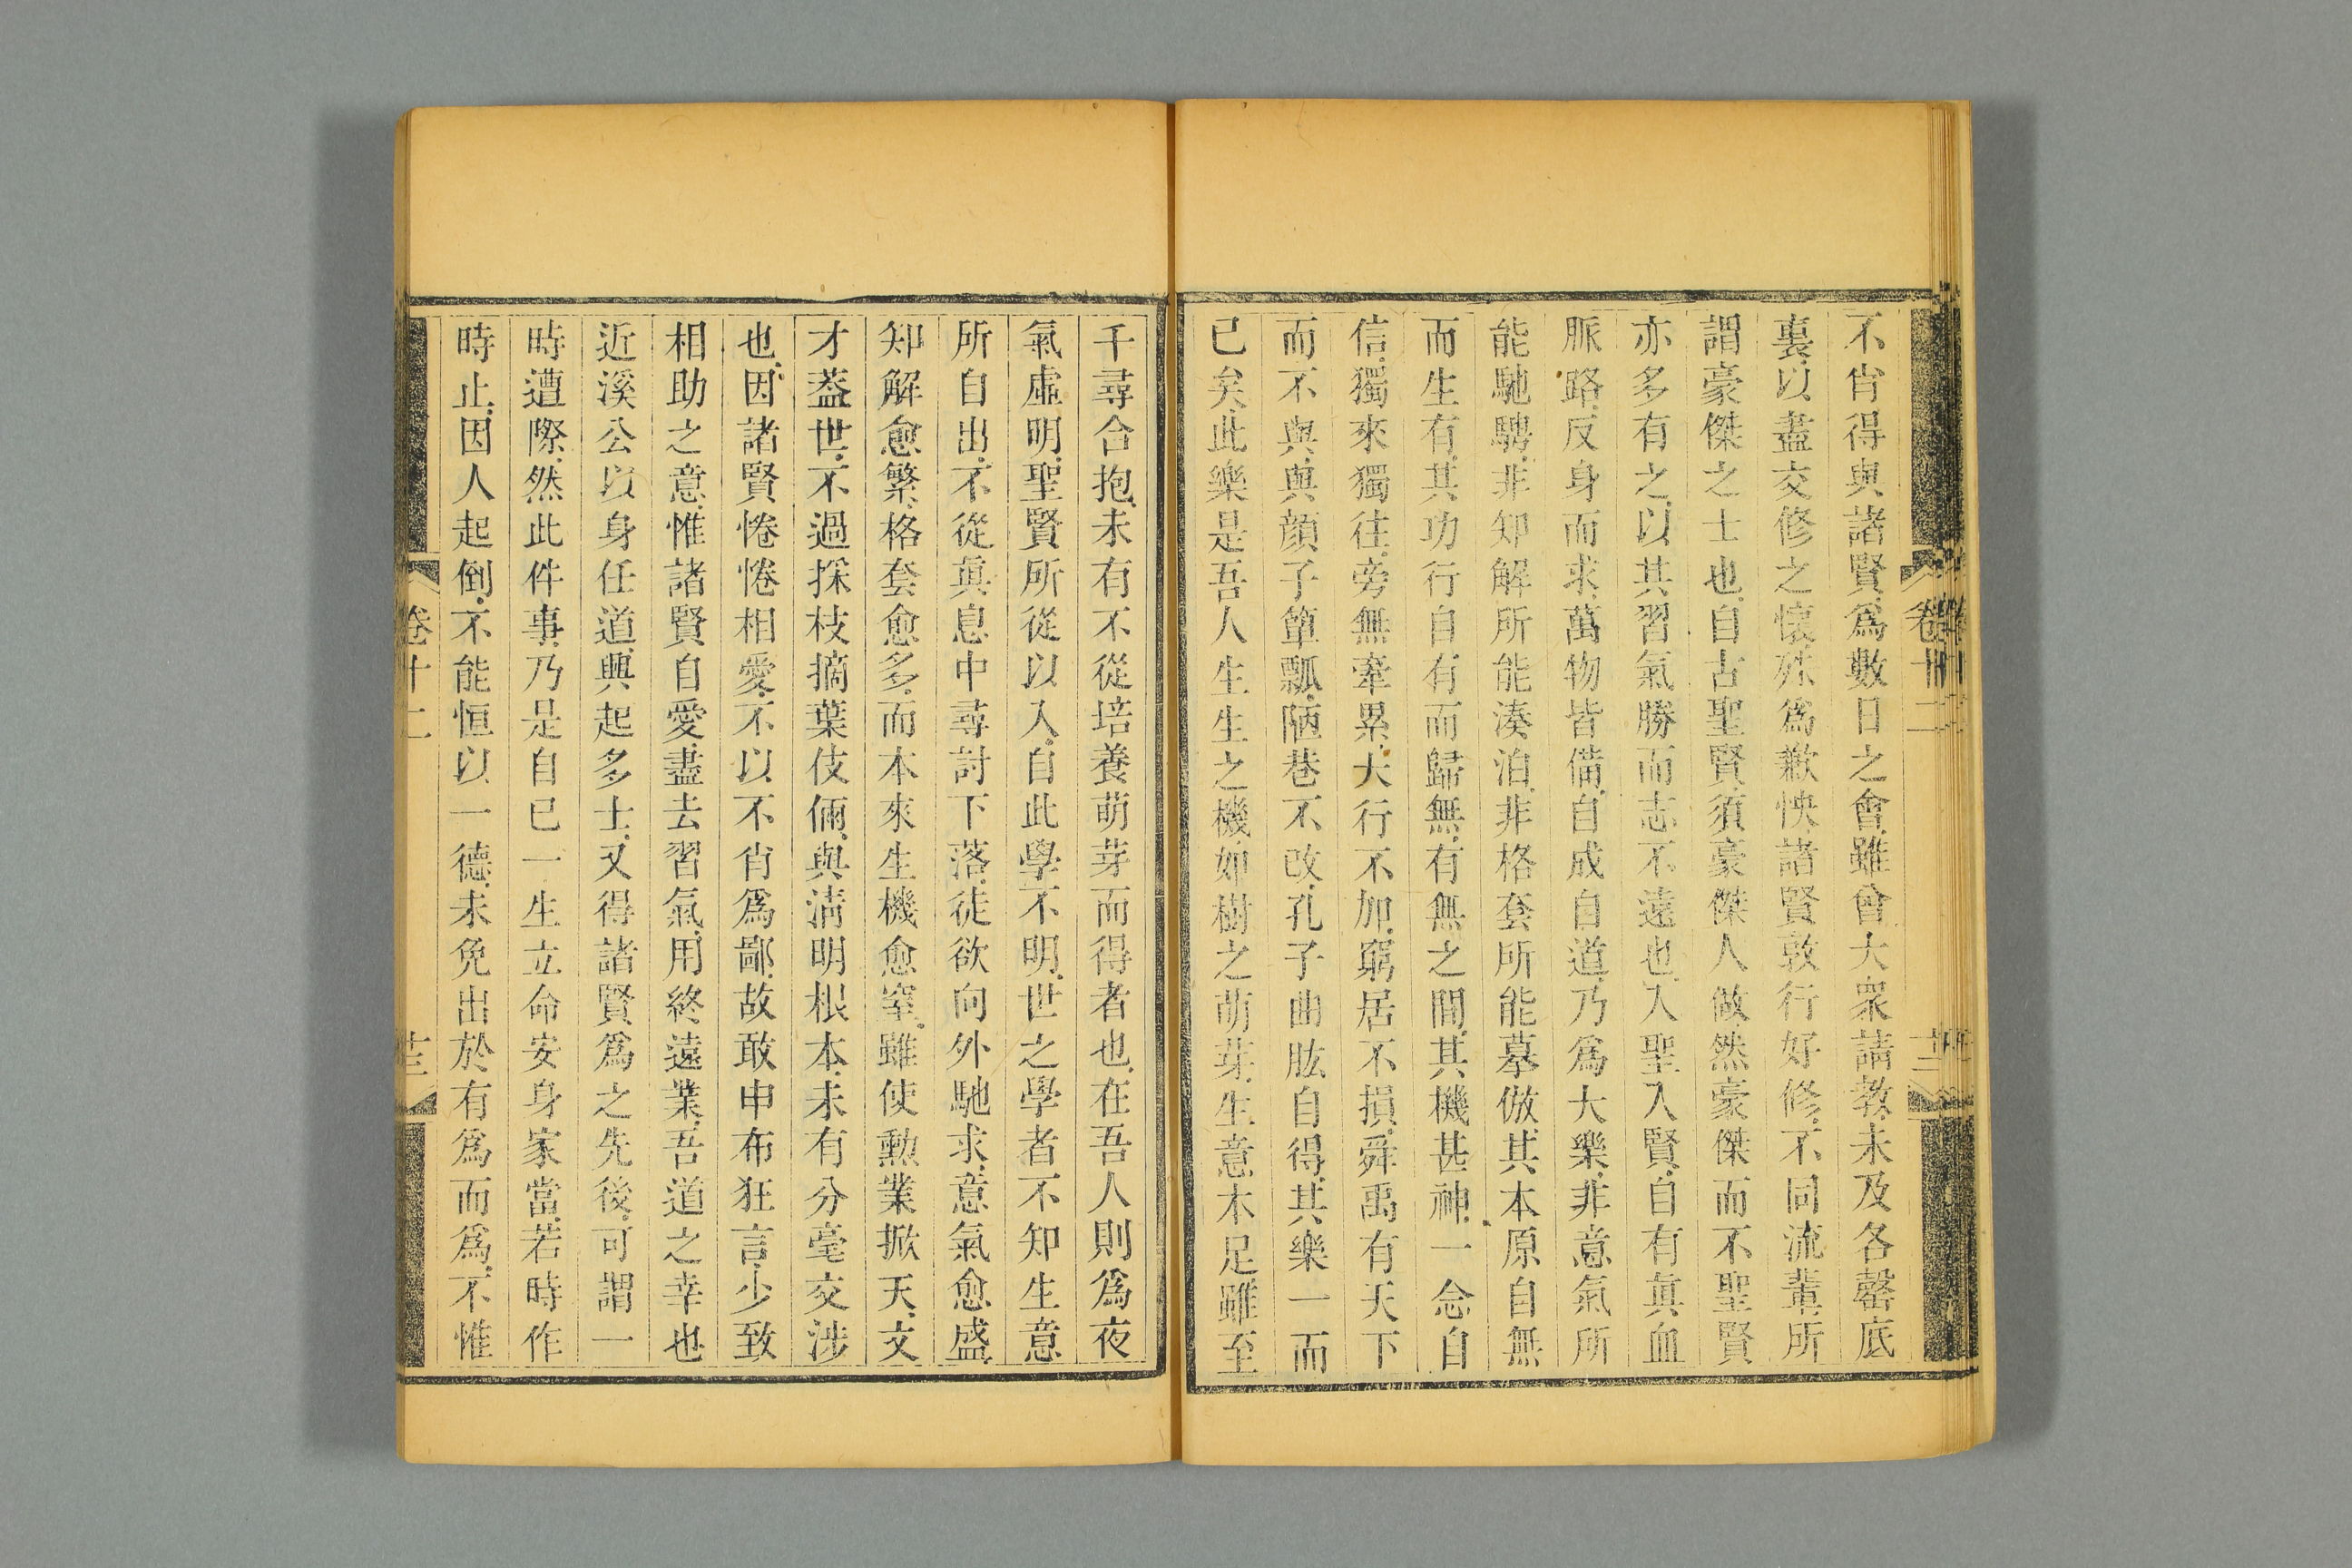 不肖得與諸賢爲數日之會雖會大衆請教未及各罄底
裏以盡交修之懷殊爲歉怏諸賢敦行好修不同流輩所
謂豪傑之士也自古聖賢須豪傑人做然豪傑而不聖賢
亦多有之以其習氣勝而志不遠也入聖入賢自有真血
脈路反身而求萬物皆備自成自道乃爲大樂非意氣所
能馳騁非知解所能湊泊非格套所能摹倣其本原自無
而生有其功行自有而歸無有無之間其機甚神一念自
信獨來獨往旁無牽累大行不加窮居不損舜禹有天下
而不與與顔子簞瓢陋巷不改孔子曲肱自得其樂一而
已矣此樂是吾人生生之機如樹之萌芽生意本足雖至
千尋合抱未有不從培養萌芽而得者也在吾人則爲夜
氣虛明聖賢所從以入自此學不明世之學者不知生意
所自出不從真息中尋討下落徒欲向外馳求意氣愈盛
知解愈繁格套愈多而本來生機愈窒雖使勳業掀天文
才葢世不過採枝摘葉伎倆與淸明根本未有分毫交涉
也因諸賢惓惓相愛不以不肖爲鄙故敢申布狂言少致
相助之意惟諸賢自愛盡去習氣用終遠業吾道之幸也
近溪公以身任道興起多士又得諸賢爲之先後可謂一
時遭際然此件事乃是自己一生立命安身家當若時作
時止因人起倒不能恒以一德未免出於有爲而爲不惟
卷十二